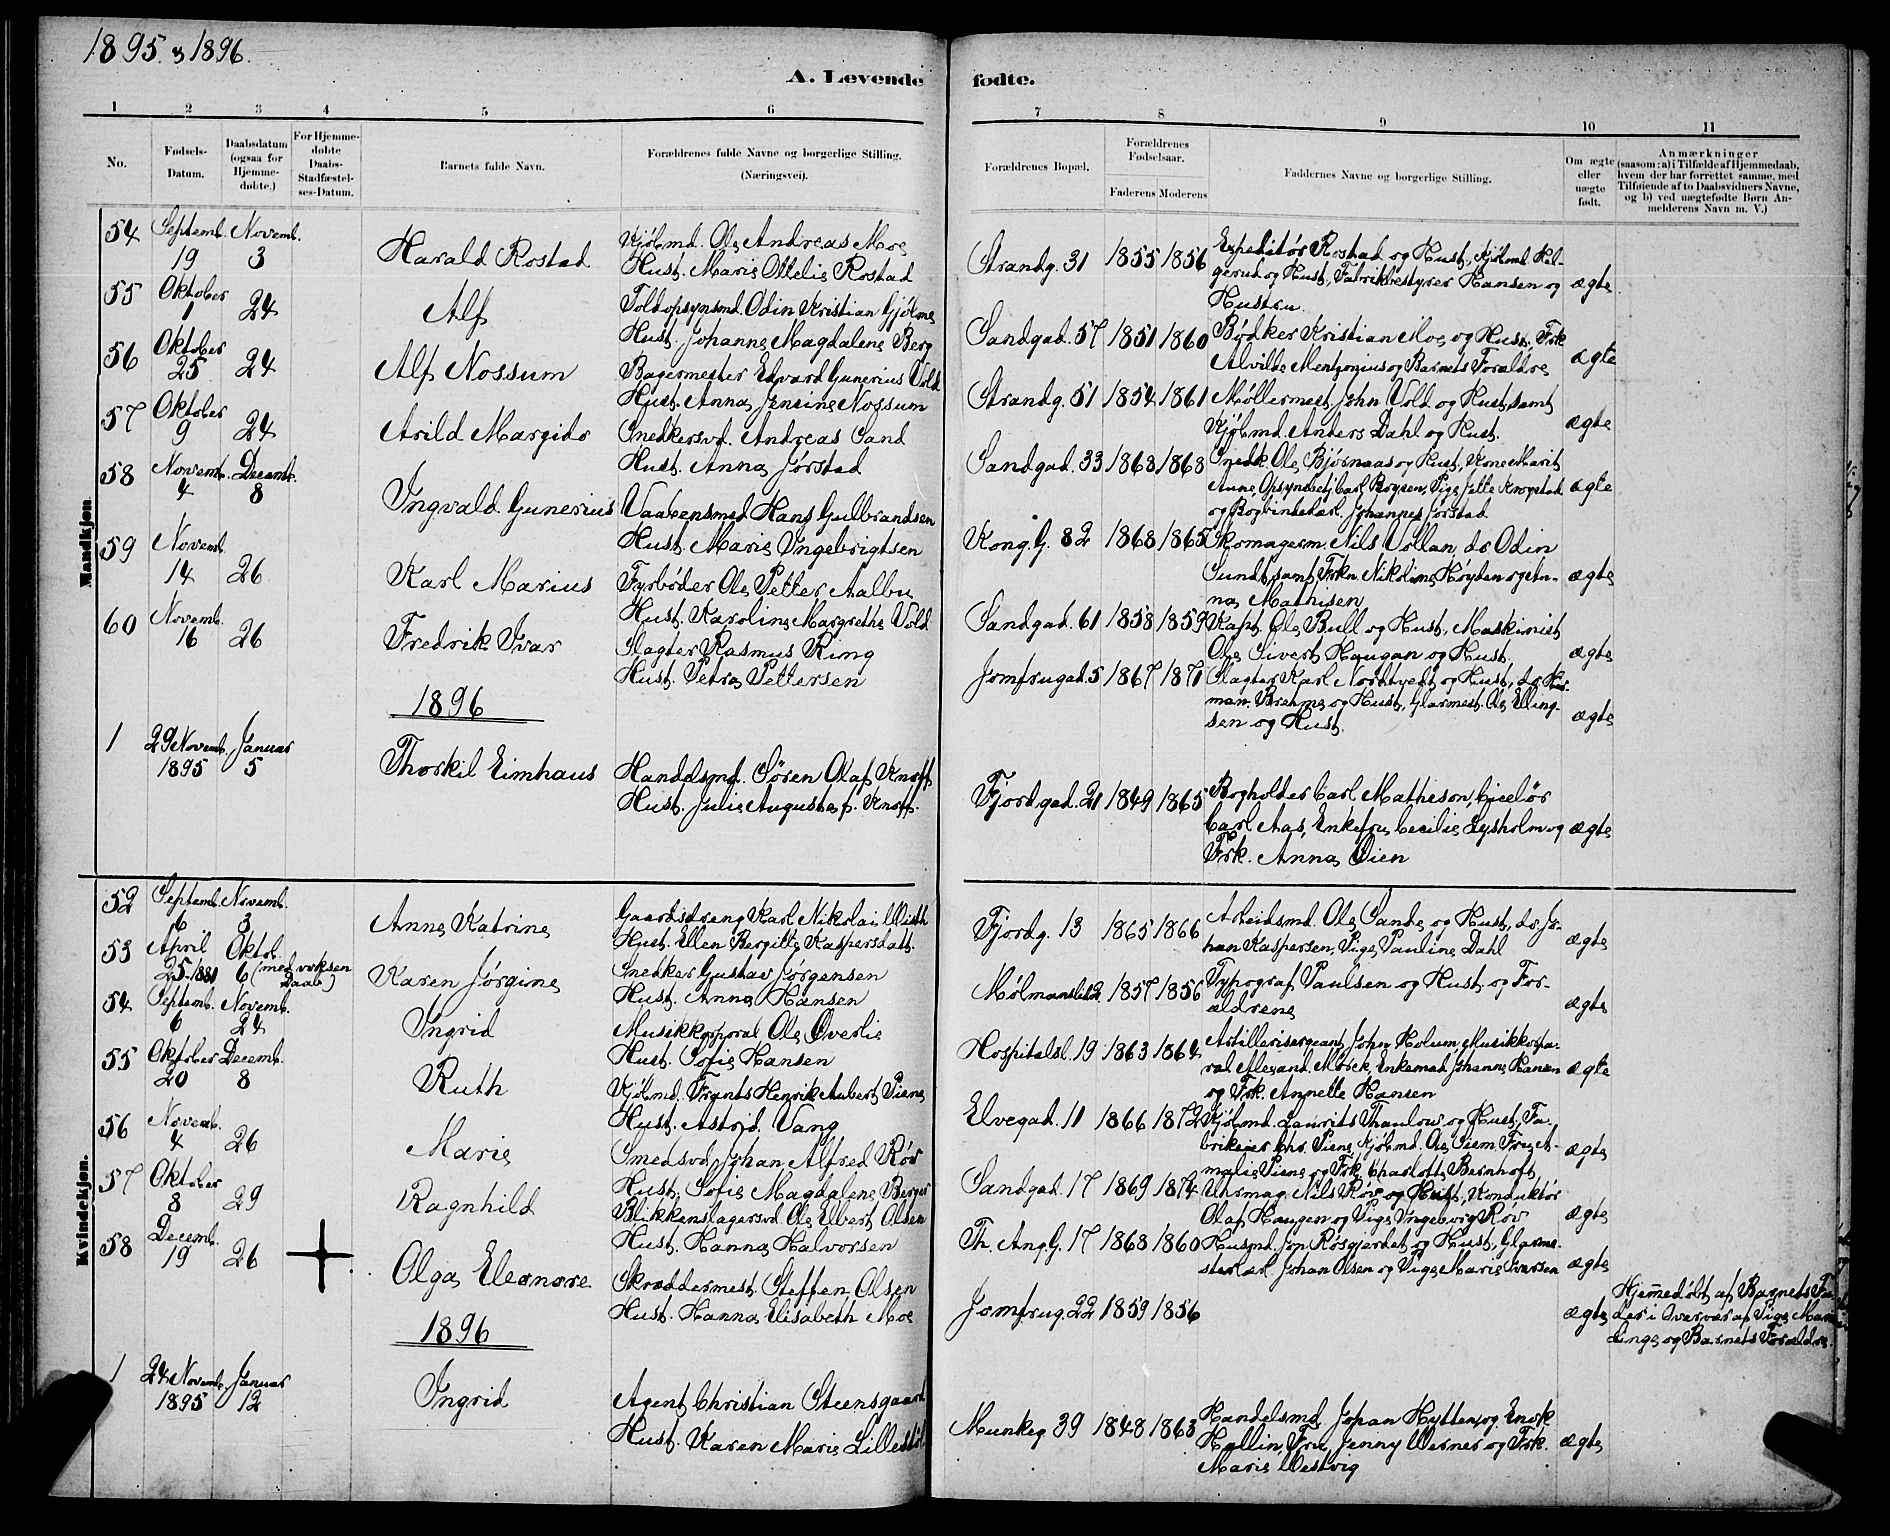 1895 & 1896.
A. Levende fødte.
1 2 3 4 5 6 7 8 9 10 11
No.
Fødsels-
Datum.
Daabsdatum
(ogsaa for
Hjemme-
døbte.)
For Hjemme-
døbte
Daabs-
Stadfæstel-
ses-Datum.
Barnets fulde Navn.
Forældrenes fulde Navne og borgerlige Stilling.
(Næringsvei).
Forældrenes Bopæl.
Forældrenes
Fødselsaar.
Faderens Moderens
Faddernes Navne og borgerlige Stilling.
Om ægte
eller
uægte
født.
Anmærkninger
(saasom: a) i Tilfælde af Hjemmedaab,
hvem der har forrettet samme, med
Tilføiende af to Daabsvidners Navne,
og b) ved uægtefødte Børn An-
melderens Navn m. V.)
Mandkjøn
54 Septemb. 19 Novemb. 3 Harald Rostad
Kjøbmd. Ole Andreas Moe
Hust. Marie Ottelie Rostad
Strandg. 31 1855 1856
Expeditør Rostad og Hust, Kjøbmd. Hel-
gerud og Hust, Fabrikbestyrer Hansen og
Hustru
ægte
55 Oktober 1 24 Alf
Toldopsynsmd. Odin Kristian Gjølme
Hust. Johanne Magdalene Berg
Sandgad. 57 1851 1860
Bødker Kristian Moe og Hust, Frk
Alvilde Mentzonius og Barnets Forældre
ægte
56 Oktober 25 24 Alf Nossum
Bagermester Edvard Gunerius Vold
Hust. Anna Jensine Nossum
Strandg. 51 1854 1861
Møllermest. John Vold og Hust, samt
Kjøbmd. Anders Dahl og Hust.
ægte
57 Oktober 9 24 Arild Margido
Snedkersvd. Andreas Sand
Hust. Anna Jørstad
Sandgad. 33 1863 1868
Snedk. Ole Bjørnaas og Hust, Kone Marit
Anne, Opsynsbetj. Carl Boysen, Pige Jette Krogstad
og Bogbinderlærl. Johannes Jørstad
ægte
58 Novemb. 4 Decemb. 8 Ingvald Gunerius
Vaabensmed Hans Gulbrandsen
Hust. Marie Ingebrigtsen
Kong. G. 82 1868 1865
Skomagerm. Nils Vollan, do Odin
Sundt, samt Frkn. Nikoline Høyden og An-
na Mathisen
ægte
59 Novemb. 14 26 Karl Marius
Fyrbøder Ole Petter Aalbu
Hust. Karoline Margrethe Vold
Sandgad. 61 1858 1859
Kapt. Ole Bull og Hust, Maskinist
Ole Sivert Haugan og Hust
ægte
60 Novemb. 16 26 Fredrik Ivar
Slagter Rasmus Ring
Hust. Petra Pettersen
Jomfrugad. 5 1867 1871
Slagter Karl Nordtvedt og Hust, do Her-
man Brehme og Hust, Glarmest. Ole Elling-
sen og Hust.
ægte
1896
1 29 Novemb. 1895 Januar 5 Thorkil Eimhaus
Handelsmd. Søren Olaf Knoff
Hust. Julie Augusta f. Knoff.
Fjordgad. 21 1849 1865
Bogholder Carl Matheson, Ciselør
Carl Aas, Enkefru Cecilie Lysholm og
Frk. Anna Øien
ægte
Kvindekjøn.
52 Septemb. 6 Novemb. 3 Anna Katrine
Gaardsdreng Karl Nikolai With
Hust. Ellen Bergitte Kaspersdat.
Fjordg. 13 1865 1866
Arbeidsmd. Ole Sande og Hust, do. Jo-
han Kaspersen, Pige Pauline Dahl
ægte
53 April 25-1881 Oktob. 6 (med voksen Daab) Karen Jørgine
Snedker Gustav Jørgensen
Hust. Anna Hansen
1857 1856
Typograf Paulsen og Hust og For-
ældrene
ægte
54 Septemb. 6 Novemb. 24 Ingrid
Musikkorporal Ole Øverlie
Hust. Sofie Hansen
Hospitalsl. 19 1863 1864
Artillerisergeant John Holum, Musikkorpo-
ral Alexand. Mørck, Enkemad. Johanne Hansen
og Frk. Annette Hansen
ægte
55 Oktober 20 Decemb. 8 Ruth
Kjøbmd. Frants Henrik Aubert Piene
Hust. Astrid Vang
Elvegad. 11 1866 1872
Kjøbmd. Laurits Thaulow og Hust, Fa-
brikeier Chr. Piene, Kjøbmd. Ole Siem, Fru A-
malie Piene og Frk. Charlotte Bernhoft
ægte
56 Novemb. 4 26 Marie
Smedsvd. Johan Alfred Røv
Hust. Sofie Magdalene Berger
Sandgad. 17 1869 1874
Uhrmag. Nils Røv og Hust, Konduktør
Olaf Haugen og Pige Ingeborg Røv
ægte
57 Oktober 8 29 Ragnhild
Blikkenslagersvd. Ole Elbert Olsen
Hust. Hanna Halvorsen
Th. Ang. G. 17 1868 1860
Husmd. Jon Røsgjerdet og Hust, Glarme-
sterlærl. Johan Olsen og Pige Marie Iversen
ægte
58 Decemb. 19 26 Olga Eleonore
Skræddermest. Steffen Olsen
Hust. Hanna Elisabeth Moe
Jomfrug. 22 1859 1856
ægte
Hjemmedøbt af Barnets Fa-
der i Overvær af Pige
Linge og Barnets Forældre.
1896
1 24 Novemb. 1895 Januar 12 Ingrid
Agent Christian Steensgaard
Hust. Karen Marie
Munkeg. 39 1848 1863
Handelsmd. Johan Hytten, og Enok
Hollin, Fru Jenny Werner og Frk.
Marie Westvig
ægte